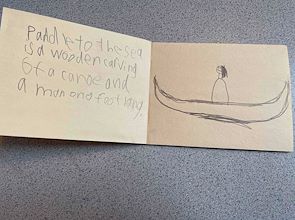 Paddle to the sea
is a wooden carving
of a canoe and
a man one foot long.